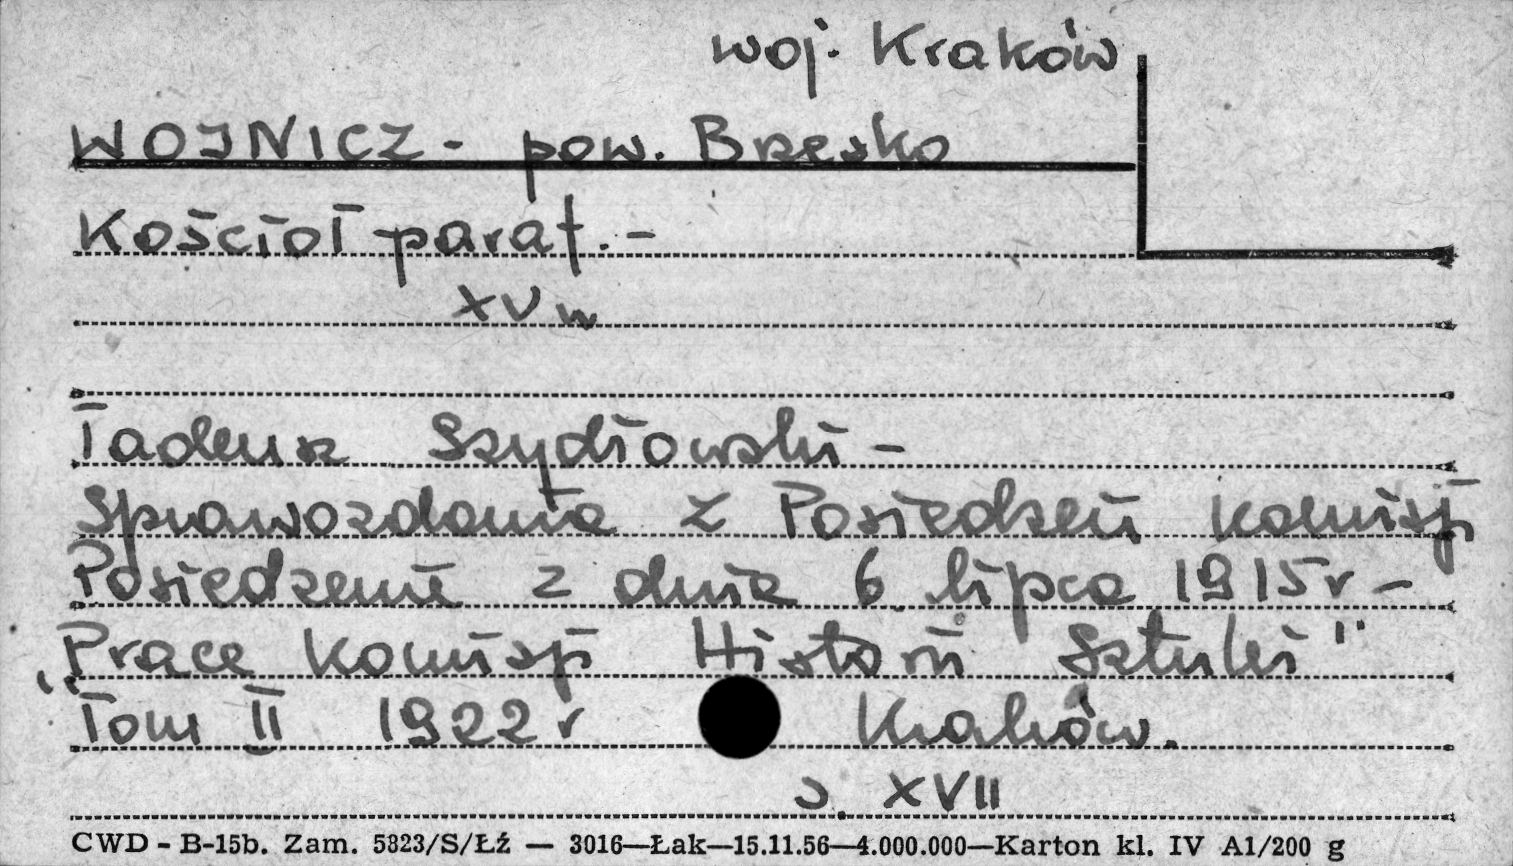 woj. Kraków
WOJNICZ - pow. Brzesko
Kościół paraf. -
XV w
Tadeusz Szydłowski -
Sprawozdania z Posiedzeń Komisji
Posiedzenie z dnia 6 lipca 1915 r -
„Prace Komisji Historii Sztuki"
Tom II 1922 r Kraków.
s. XVII
CWD - B-15b. Zam. 5823/S/Łź — 3016—Łak—15.11.56—4.000.000—Karton kl. IV A1/200 g